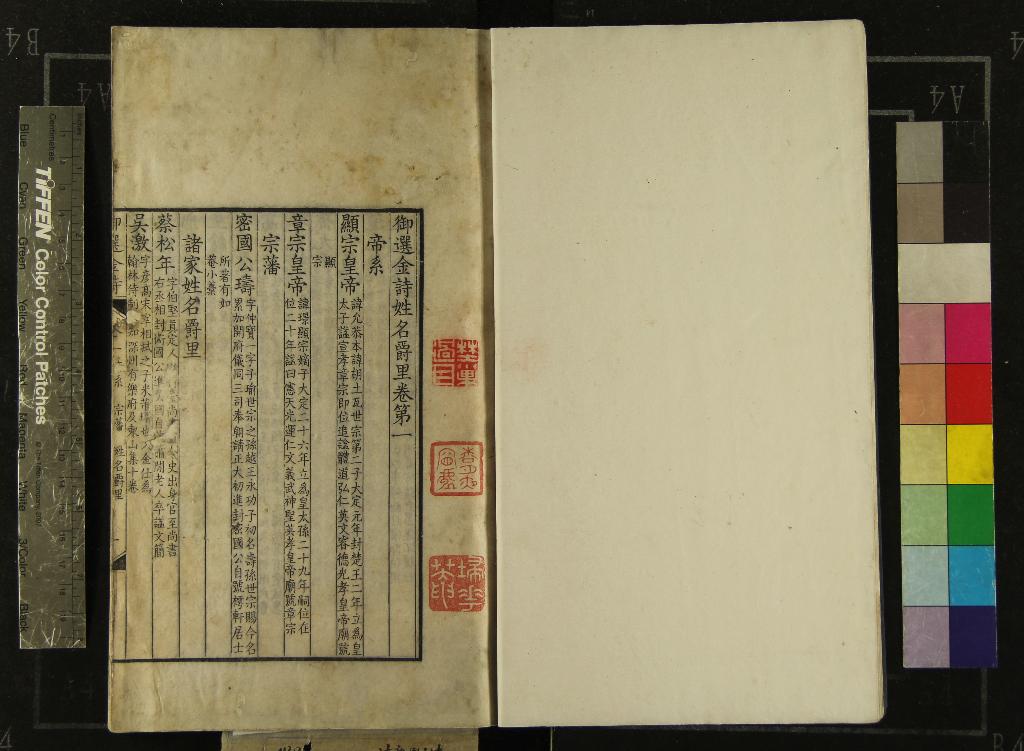 御選金詩姓名爵里卷第一
帝系
顯宗皇帝
諱允恭本諱胡土瓦世宗第二子大定元年封楚王二年立為皇
太子諡宣孝章宗即位追諡體道弘仁英文睿德光孝皇帝廟號
顯
宗
章宗皇帝
諱璟顯宗嫡子大定二十六年立為皇太孫二十九年嗣位在
位二十年諡曰憲天光運仁文義武神聖英孝皇帝廟號章宗
宗藩
密國公璹
字仲寶一字子瑜世宗之孫越王永功子初名壽孫世宗賜今名
累加開府儀同三司奉朝請正大初進封密國公自號樗軒居士
所著有如
菴小藁
諸家姓名爵里
蔡松年
字伯堅真定人
史出身官至尚書
右丞相封衛國公
閒老人卒諡文簡
吳激
字彥高宋宰相栻之子米芾
金仕為
翰林待制
深州有樂府及東山集十卷
御選金詩
宗藩
姓名爵里
TIFFEN Color Control Patches
Centimetres
Inches
Blue
Cyan
Green
Yellow
Red
Magenta
White
3/Color
Black
B4
A4
A4